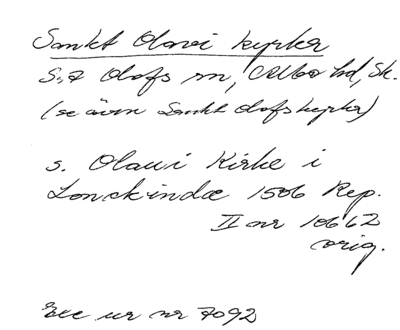 Sankt Olavi kyrka
S:t Olofs sn, Albo hd, Sk.
(se även Sankt Olofs kyrka)
s. Olaui Kirke i
Lonckindæ 1506 Rep.
II nr 10662
orig.
Exc ur nr 7092